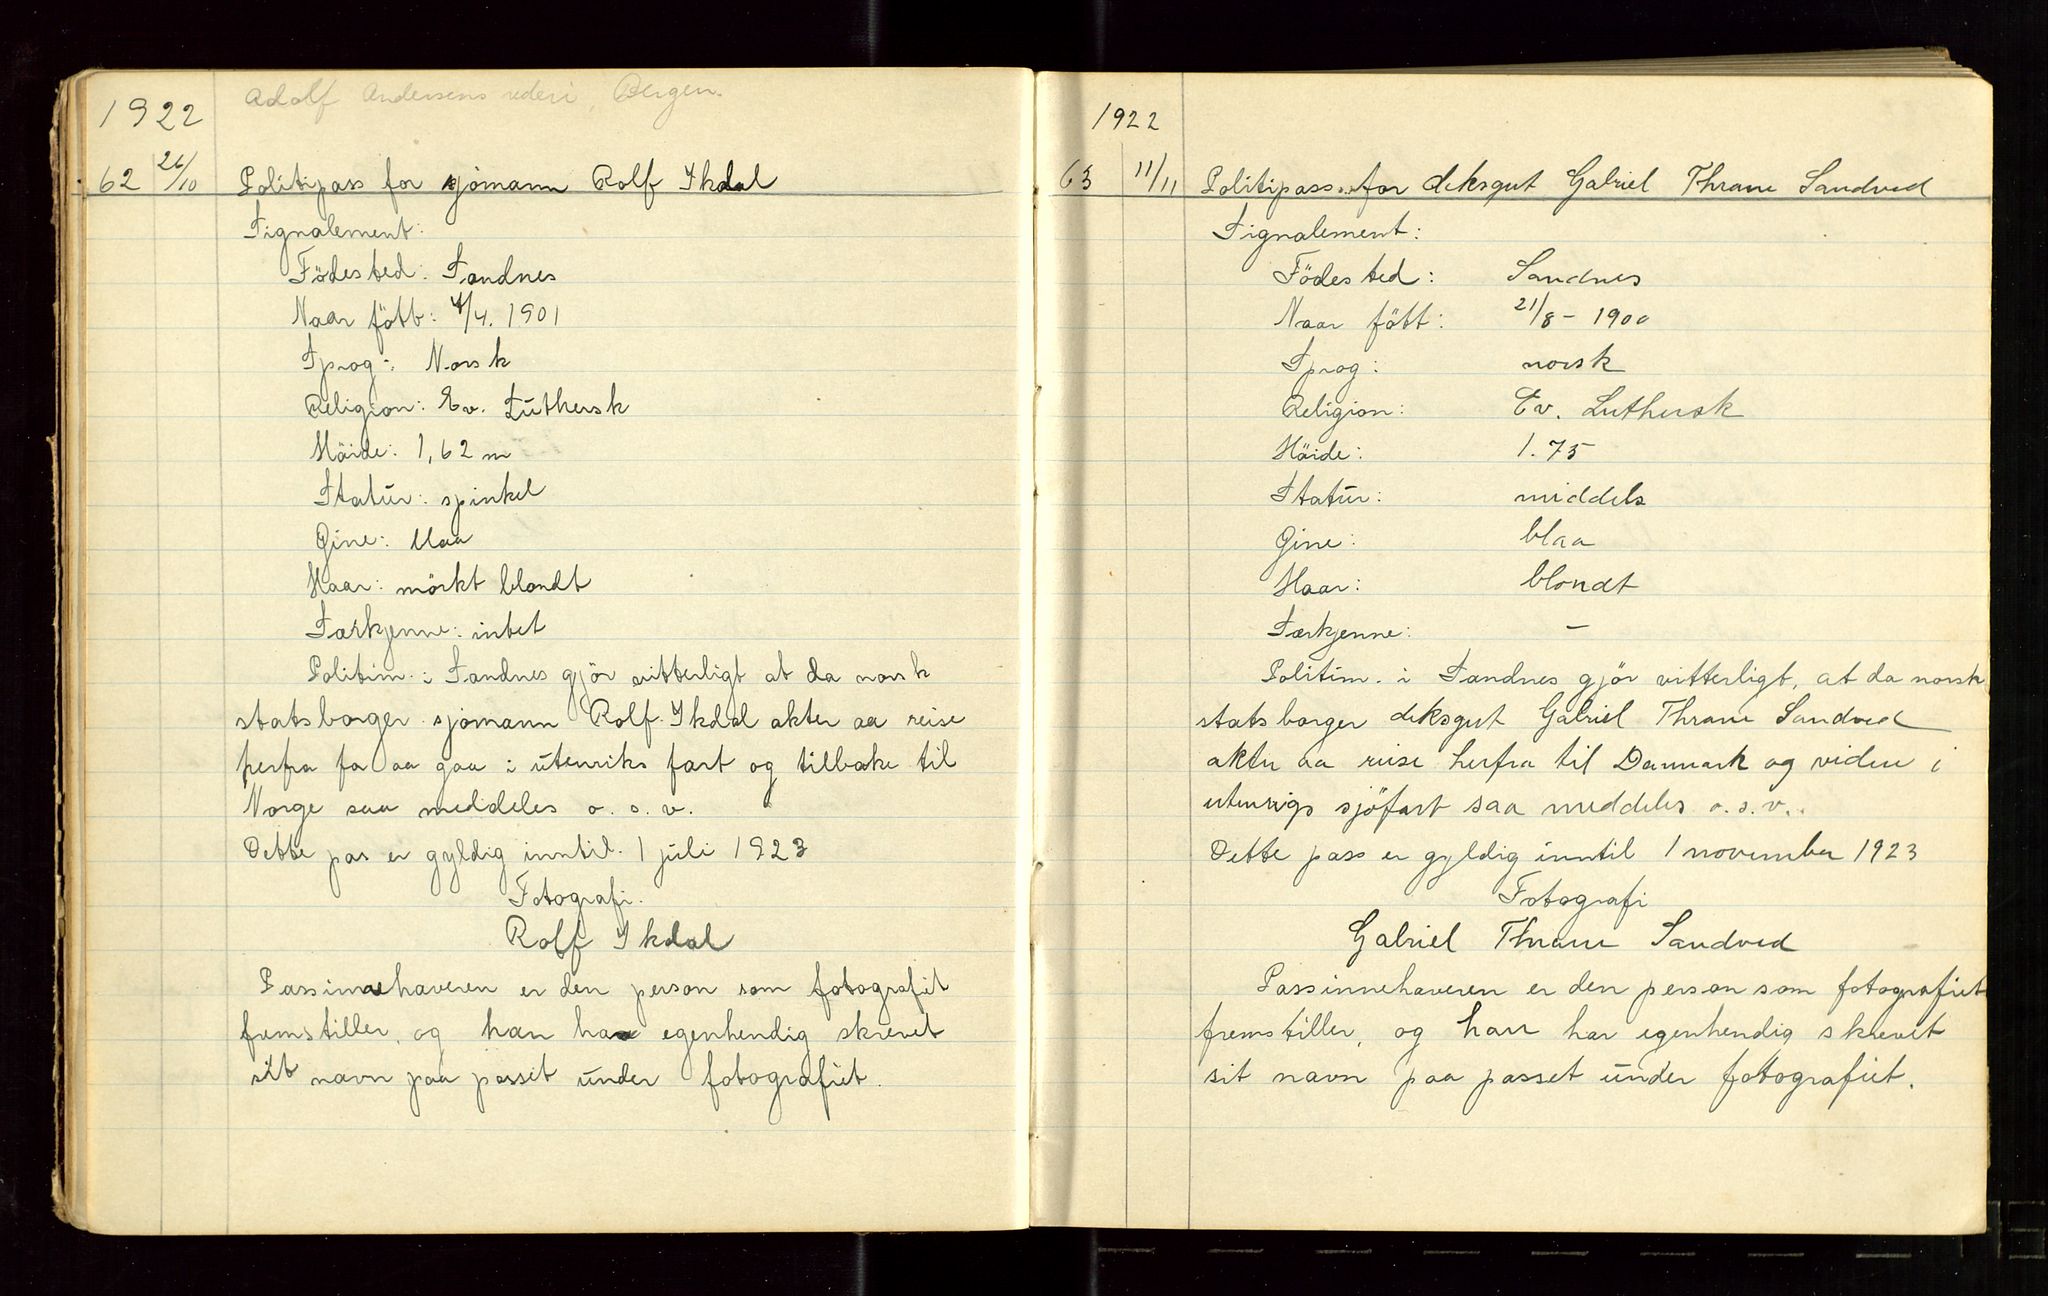 Adolf Andersens rederi, Bergen.
1922
62 26/10 Politipass for sjømann Rolf Ikdal
Signalement:
Födested: Sandnes
Naar fött: 4/4. 1901
Sprog: Norsk
Religion: Ev. Luthersk
Höide: 1,62 m
Statur: spinkel
Öine: blaa
Haar: mörkt blondt
Særkjenne: intet
Politim. i Sandnes gjör vitterligt at da norsk
statsborger sjømann Rolf Ikdal akter aa reise
herfra for aa gaa i utenriks fart og tilbake til
Norge saa meddeles o. s. v.
Dette pas er gyldig inntil 1 juli 1923
Fotografi.
Rolf Ikdal
Passinnehaveren er den person som fotografiet
fremstiller, og han har egenhendig skrevet
sit navn paa passet under fotografiet.
1922
63 11/11 Politipass for deksgut Gabriel Thrane Sandved
Signalement:
Födested: Sandnes
Naar fött: 21/8 - 1900
Sprog: norsk
Religion: Ev. Luthersk
Höide: 1.75
Statur: middels
Öine: blaa
Haar: blondt
Særkjenne: -
Politim. i Sandnes gjör vitterligt, at da norsk
statsborger deksgut Gabriel Thrane Sandved
akter aa reise herfra til Danmark og videre i
utenrigs sjöfart saa meddeles o. s. v.
Dette pass er gyldig inntil 1 november 1923
Fotografi
Gabriel Thrane Sandved
Passinnehaveren er den person som fotografiet
fremstiller, og han har egenhendig skrevet
sit navn paa passet under fotografiet.